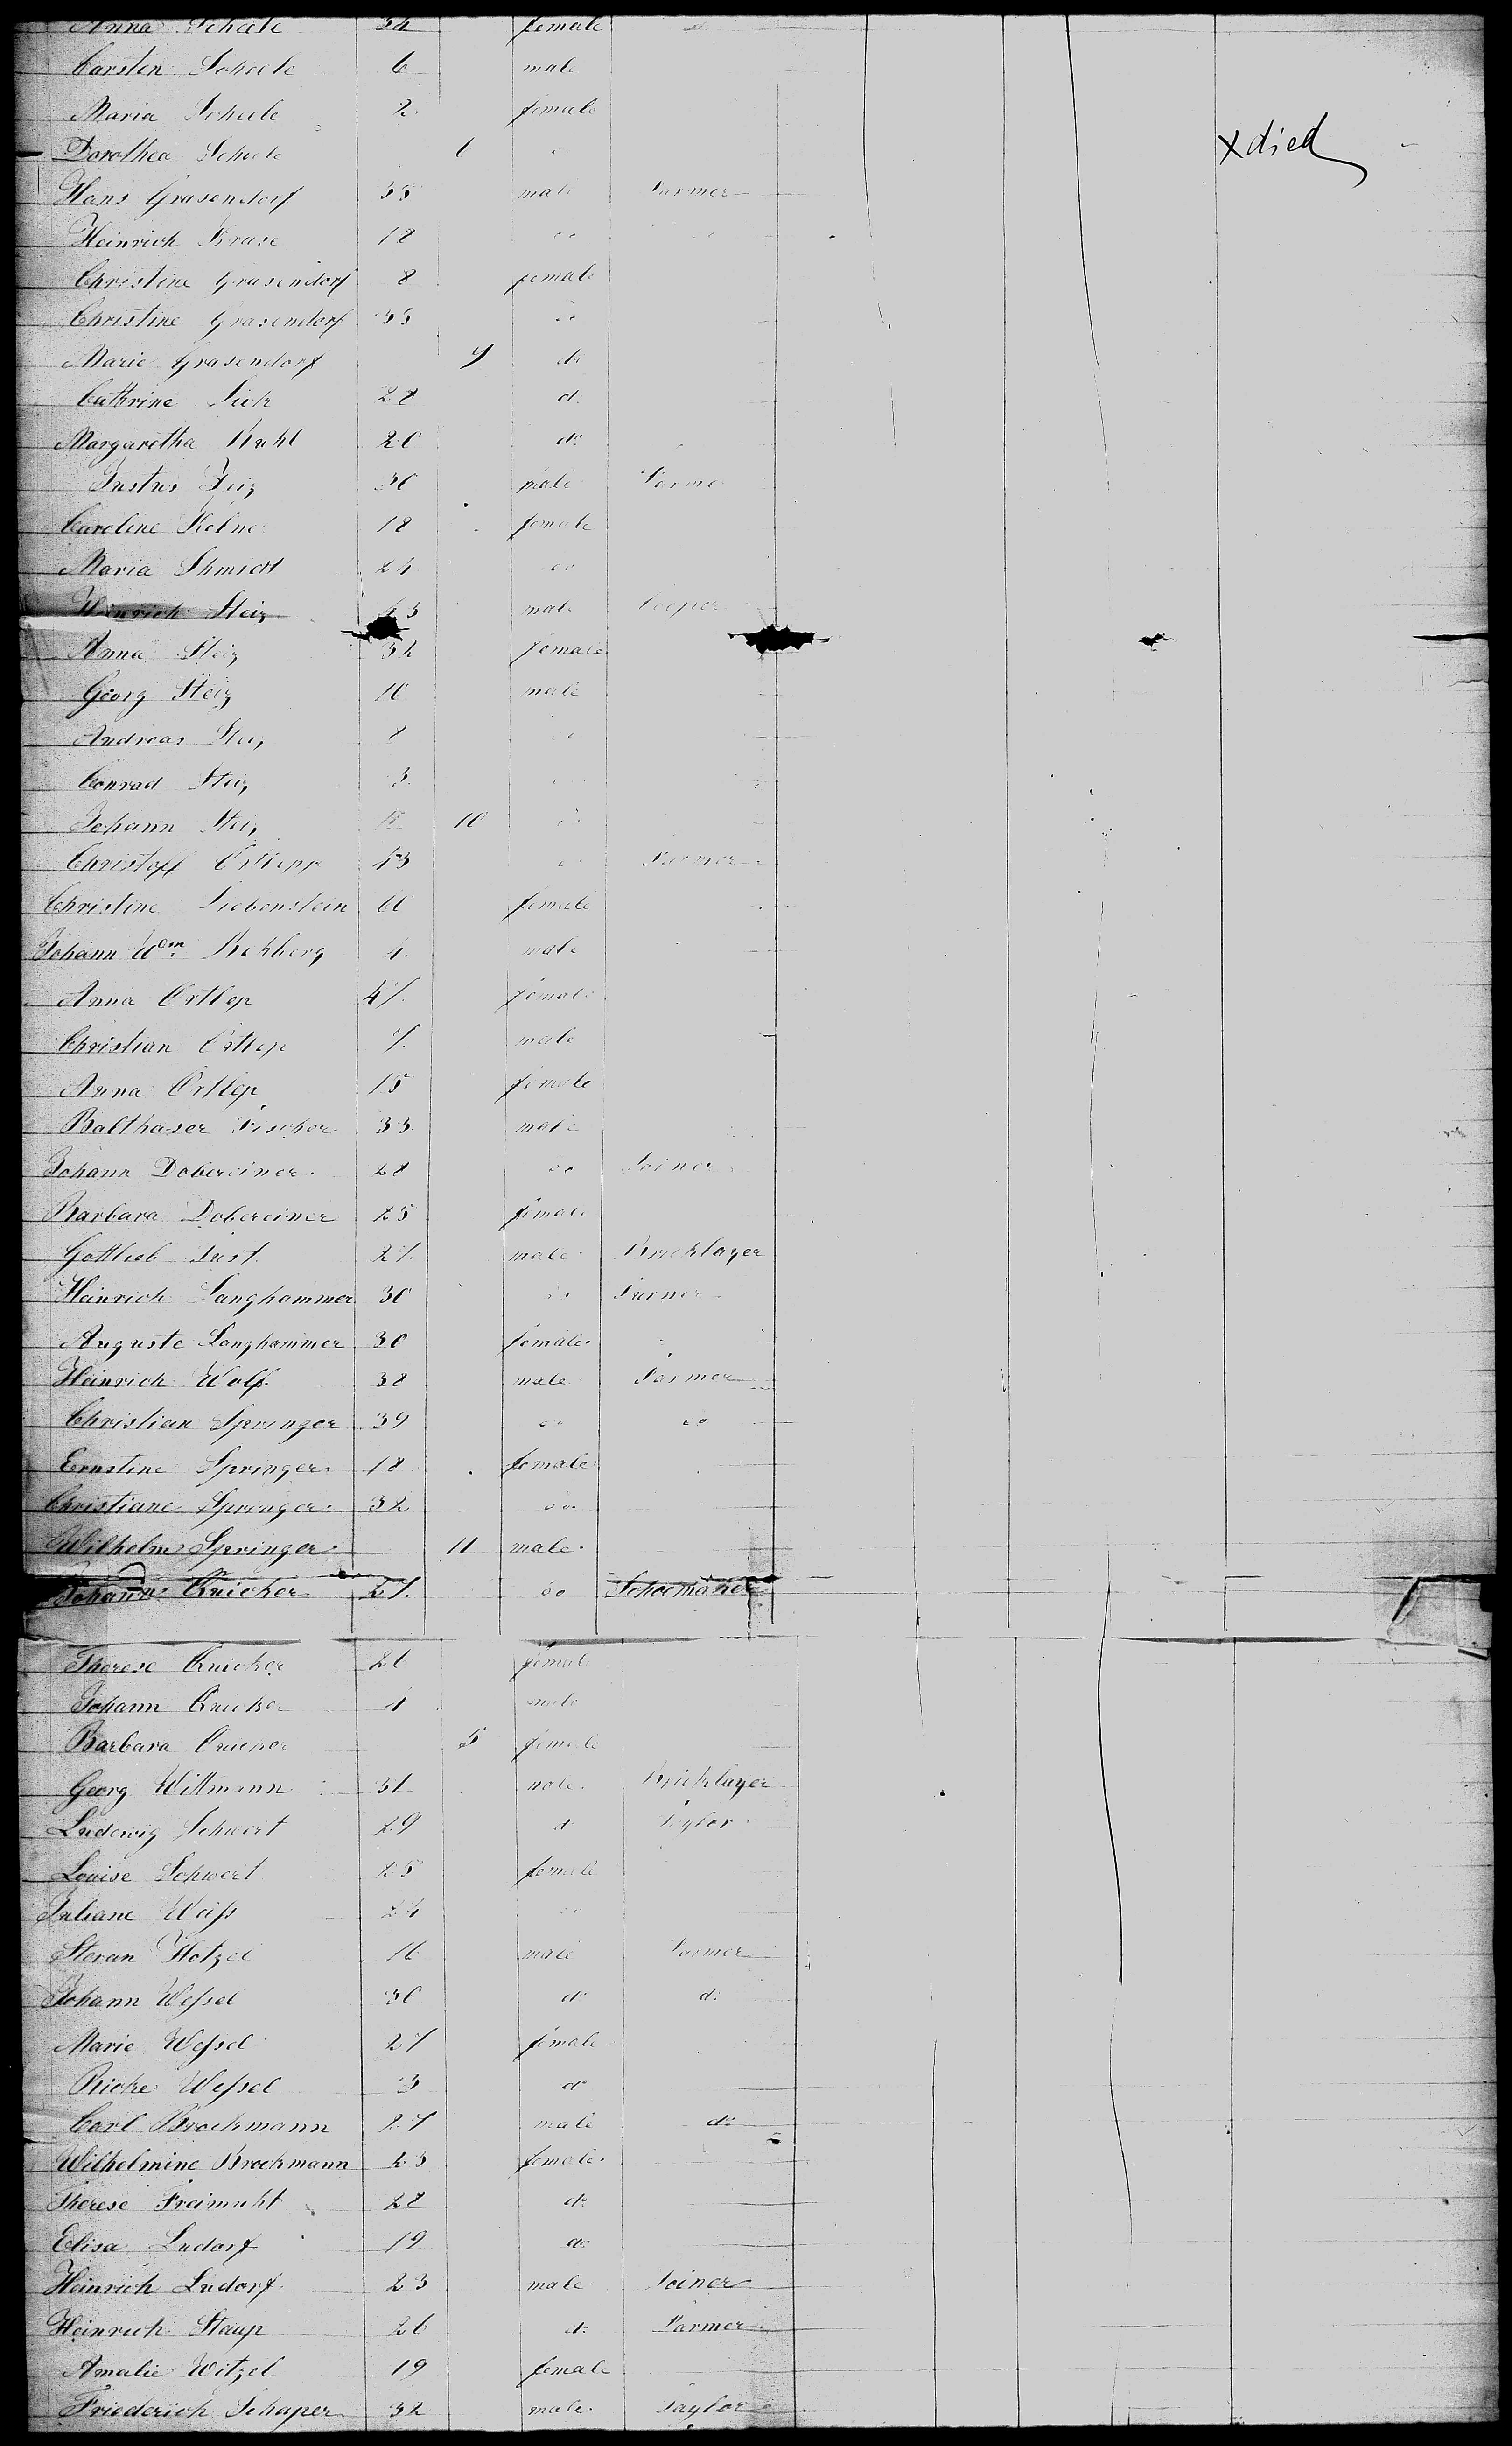 Anna Scheele 34 female do
Carsten Scheele 6 male
Maria Scheele 2 female
Dorothea Scheele 6 do x died
Hans Grasendorf 35 male Farmer
Heinrich Kruse 18 do do
Christine Grasendorf 8 female
Christine Grasendorf 33 do
Marie Grasendorf 9 do
Cathrine 28 do
Margaretha Kuhl 20 do
Justus 30 male Farmer
Caroline 18 female
Maria Shmidt 24 do
Heinrich Steiz 43 male Cooper
Anna Steiz 32 female
Georg Steiz 10 male
Andreas Steiz 8 do
Conrad Steiz 3 do
Johann Steiz 10 do
Christoff 43 do Farmer
Christine Liebenstein female
Johann Wm Rehberg 4 male
Anna Ortlep 47 female
Christian Ortlep 7 male
Anna Ortlep 15 female
Balthaser Fischer 33 male
Johann Dobereiner 28 do Joiner
Barbara Dobereiner 25 female
Gottlieb Just 27 male Bricklayer
Heinrich Langhammer 30 do
Auguste Langhammer 30 female
Heinrich Wolf 38 male Farmer
Christian Springer 39 do do
Ernstine Springer 18 female
Christiane Springer 32 do
Wilhelm Springer 11 male
Johann Quicker 27 do Schoemaker
Therese Quicker 26 female
Johann Quicker 4 male
Barbara Quicker 5 female
Georg Wittmann 31 male Bricklayer
Ludewig Schwert 29 do Taylor
Louise Schwert 25 female
Juliane Weiss 24 do
Stevan Hotzel 16 male Farmer
Johann Wessel 30 do do
Marie Wessel 27 female
Ricke Wessel 3 do
Carl Brockmann 27 male do
Wilhelmine Brockmann 23 female
Therese Freimuht 28 do
Elisa Ludorf 19 do
Heinrich Ludorf 23 male Joiner
Heinrich Staup 26 do Farmer
Amalie Witzel 19 female
Friederich Schaper 32 male Taylor